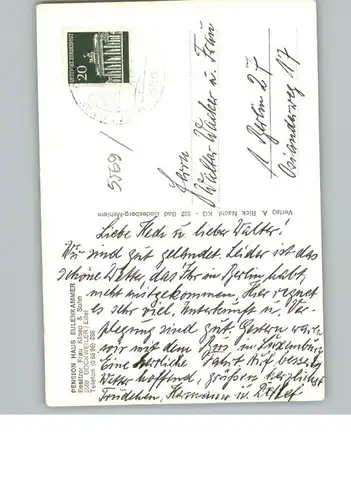 DEUTSCHE BUNDESPOST
20
5569/
Herrn
Walter Wacker u. Frau
1 Berlin 27
17
Verlag A. Rick Nachf. KG - 532 Bad Godesberg-Mehlem
PENSION HAUS EULENKAMMER
Besitzer: Frau Kipep & Sohn
5569 DOCKWEILER/Eifel
Telefon (0 65 95) 298
Liebe Hede u. lieber Walter!
Wir sind gut gelandet. Leider ist das
schöne Wetter das Ihr in Berlin habt,
nicht mitgekommen. Hier regnet
es sehr viel. Unterkunft u. Ver-
pflegung sind gut. Gestern waren
wir mit dem Bus in Luxemburg
Eine herrliche Fahrt. Auf besseres
Wetter hoffend, grüßen herzlichst
Trudchen, Hermann u. Detlef